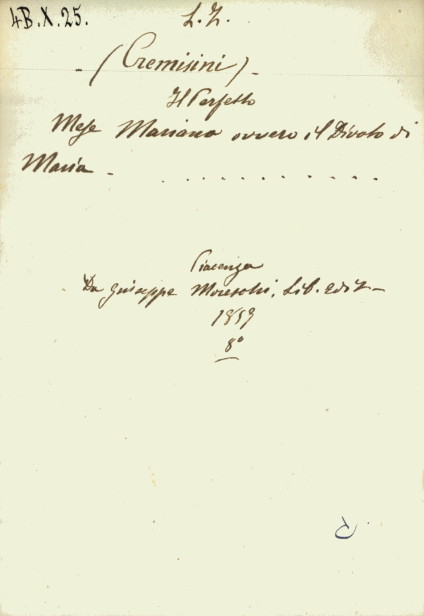 4B.X.25.
L. Z.
(Cremisini)
Il Perfetto
Mese Mariano ovvero il Divoto di
Maria - . . . . . . . . . . .
Piacenza
Da Giuseppe Moreschi, Lib. edit
1859
8°